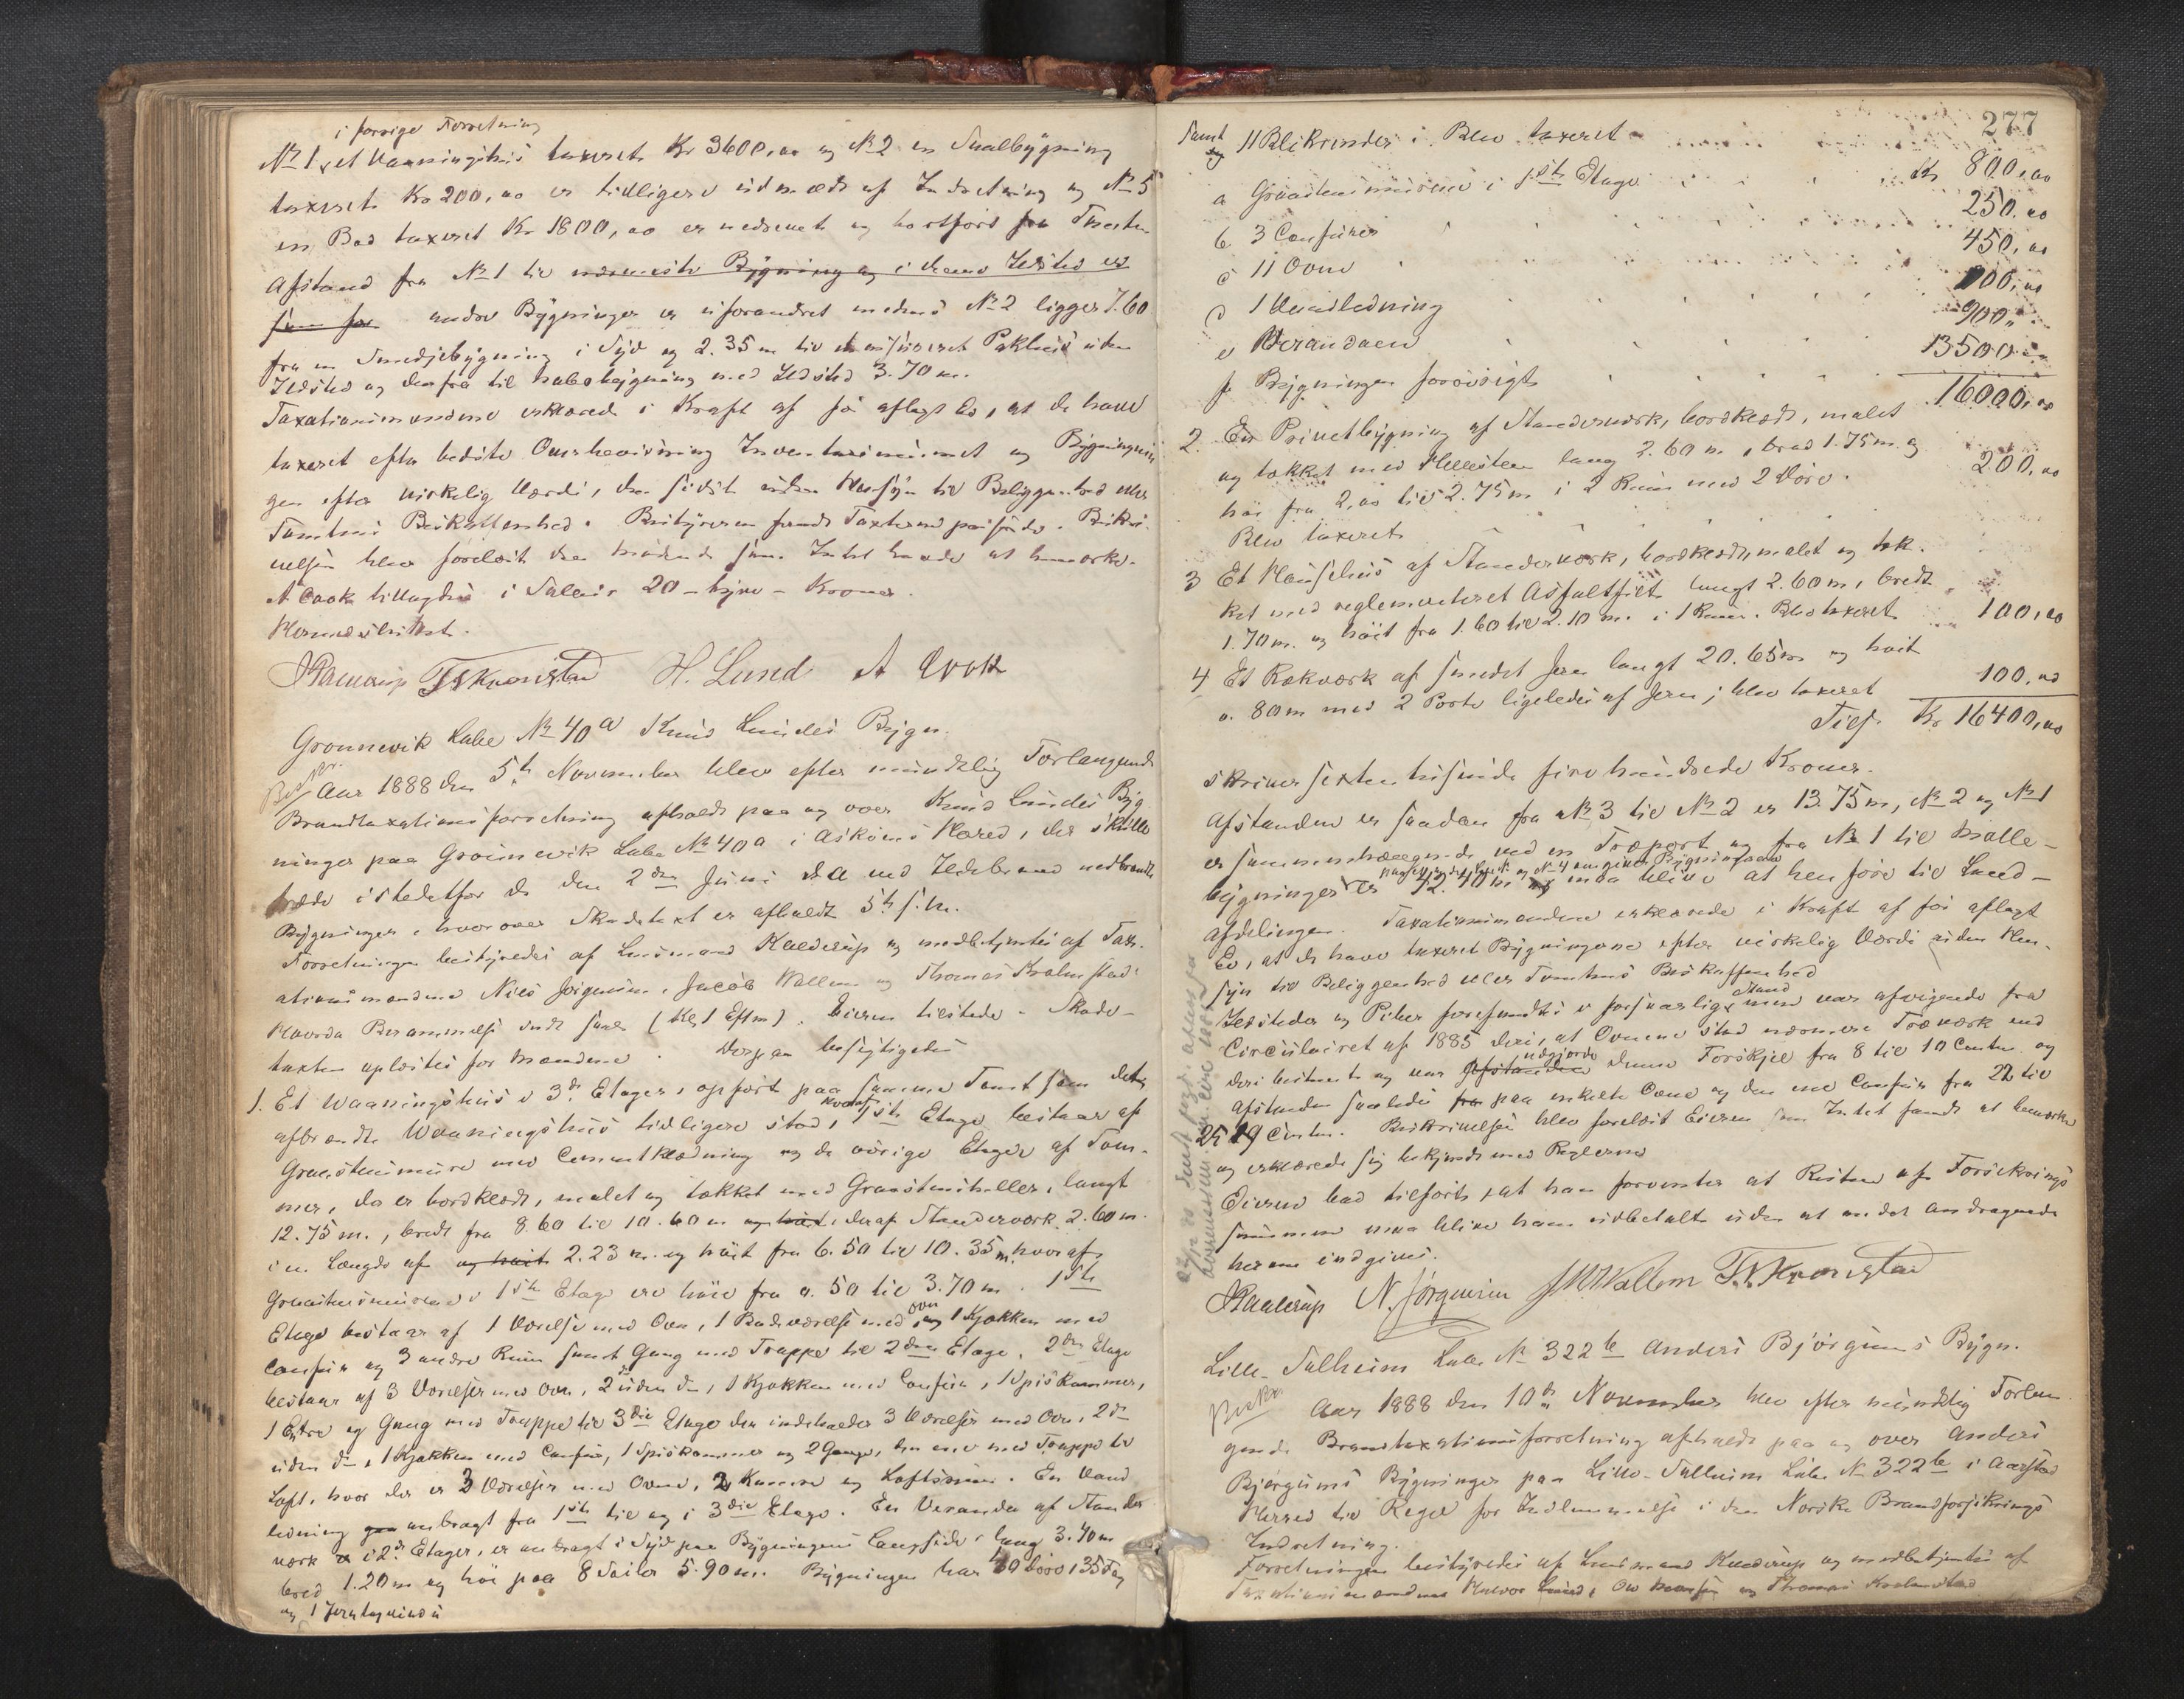 i forrige Forretning
No 1, et Vaaningshus taxeret Kr 3600,00 og No 2 en Smalbygning
taxeret Kr 200,00 er tidligere udmeldt af Indretning og No 5
en Bod taxeret Kr 1800,00 er nedrevet og bortført fra Tomten
Afstand fra No 1 til nærmeste Bygning og i denne Ildsted er
som før andre Bygninger er uforandret medens No 2 ligger 7.60
fra en Smedjebygning i Syd og 2.35 m til et Pakhus uden
Ildsted og derfra til Nabobygning med Ildsted 3.70 m.
Taxationsmændene erklærede i Kraft af før aflagt Ed, at de have
taxeret efter bedste Overbevisning og Bygningen
efter virkelig Værdi, den sidste uden Hensyn til Beliggenhed eller
Tomtens Beskaffenhed. Bestyreren fandt Taxterne passende. Beskri-
velsen blev forelæst de mødende som Intet havde at bemærke.
A Cook tillagdes i Salair 20 - tyve - Kroner.
Kaalerup T S Kronstad H. Lund A Cook
Grønnevik Labe No 40 a Knud Lundes Bygn.
Aar 1888 den 5te November blev efter mundtlig Forlangende
Brandtaxationsforretning afholdt paa og over Knud Lundes Byg-
ninger paa Grønnevik Labe No 40 a i Askøens Herred, der skulle
træde istedetfor de den 2den Juni d.A ved Ildebrand nedbrændte
Bygninger, hvorover Skadetaxt er afholdt 5te s.M.
Forretningen bestyredes af Lensmand Kaalerup og medbetjentes af Tax-
ationsmændene Nils Jørgensen, Jacob Wallem og Thomas Kronstad
(Kl 1 Eftm). Eieren tilstede. Skade-
taxten oplæstes for Mændene. Derpaa besigtigedes
1. Et Waaningshus i 3de Etager, opført paa samme Tomt som det
afbrændte Waaningshus tidligere stod, hvoraf 1ste Etage bestaar af
Graastensmure med Cementklædning og de øvrige Etager af Tøm-
mer, der er bordklædt, malet og tækket med Graastensheller, langt
12.75 m., bredt fra 8.60 til 10.60 m og høit, deraf Standerværk 2.60 m
i en Længde af og høit 2.23 m. og høit fra 6.50 til 10.35 m, hvoraf
Graastensmurene i 1ste Etage ere høie fra 0.50 til 3.70 m. 1ste
Etage bestaar af 1 Værelse med Ovn, 1 Badeværelse med Ovn, og 1 Kjøkken med
Comfur og 3 andre Rum samt Gang med Trappe til 2den Etage. 2den Etage
bestaar af 3 Værelser med Ovn, 2 uden do, 1 Kjøkken med Comfur, 1 Spiskammer,
1 Entre og Gang med Trappe til 3die Etage der indeholder 3 Værelser med Ovn, 2 do
uden do, 1 Kjøkken med Comfur, 1 Spiskammer og 2 Gange, den ene med Trappe til
Loft, hvor der er 3 Værelser med Ovne, 2 Kamre og Loftsrum. En Vand
ledning anbragt fra 1ste til og i 3die Etage. En Veranda af Stander
værk i 2de Etager, er anbragt i Syd paa Bygningens Langside, lang 3.40 m
bred 1.20 m og høi paa 8 Søiler 5.90 m. Bygningen har 40 Døre, 35 Fag
og 1 Jerntagvindu
277
samt 11 Blikrender. Blev taxeret
a Graastensmurene i 1ste Etage Kr 800,00
b 3 Comfurer 250.00
c 11 Ovne 450,00
d 1 Vandledning 00,00
e Verandaen 900,,
f Bygningen forøvrigt 13500.00
16000,00
2. En Privetbygning af Standerværk, bordklædt, malet
og tækket med Hellesten lang 2.60 m, bred 1.75 m. og
høi fra 2,00 til 2.75 m i 2 Rum med 2 Døre.
Blev taxeret 200,00
3 Et Hønsehus af Standerværk, bordklædt, malet og tæk-
ket med reglementeret Asfaltfilt langt 2.60 m, bredt
1.70 m. og høit fra 1.60 til 2.10 m. i 1 Rum. Blev taxeret 100,00
4 Et Rækværk af smedet Jern langt 20.65 m og høit
0.80 m med 2 Porte ligeledes af Jern; blev taxeret 100,00
Tils. Kr 16400,00
skriver sexten tusinde fire hundrede Kroner.
Afstanden er saadan fra No 3 til No 2 er 13.75 m, No 2 og No 1
er sammenhængende ved en Træport og fra No 1 til Mølle-
bygninger er 42.40 m og No 4 omgiver Bygningerne maa blive at henføre til Land-
afdelingen. Taxationsmændene erklærede i Kraft af før aflagt
Ed, at de have taxeret Bygningerne efter virkelig Værdi uden Hen-
syn til Beliggenhed eller Tomtens Beskaffenhed
Ildsteder og Piber forefandtes i forsvarlig Stand men var afvigende fra
Circulairet af 1885 deri, at Ovnene stod nærmere Træværk end
deri bestemt og var Afstanden udgjorde denne Forskjel fra 8 til 10 Centm. og
Afstanden saaledes fra paa enkelte Ovne og den ene Comfur fra 22 til
25 Centm. Beskrivelsen blev forelæst Eieren som Intet fandt at bemærke
og erklærede sig bekjendt med Reglerne
Eieren bad tilført, at han forventer at Resten af Forsikrings
summen maa blive ham udbetalt uden at andet Andragende
herom indgives.
Kaalerup N. Jørgensen J M Wallem T.S. Kronstad
Lille-Solheim Labe No 322 b Anders Bjørgums Bygn.
Aar 1888 den 10de November blev efter mundtlig Forlan-
gende Brandtaxationsforretning afholdt paa og over Anders
Bjørgums Bygninger paa Lille-Solheim Labe No 322 b i Aarstad
Herred til Regel for Indlemmelse i den Norske Brandforsikrings
Indretning.
Forretningen bestyredes af Lensmand Kaalerup og medbetjentes af
Taxationsmændene Halvor Lund, Ole Hansen og Thomas Kronstad